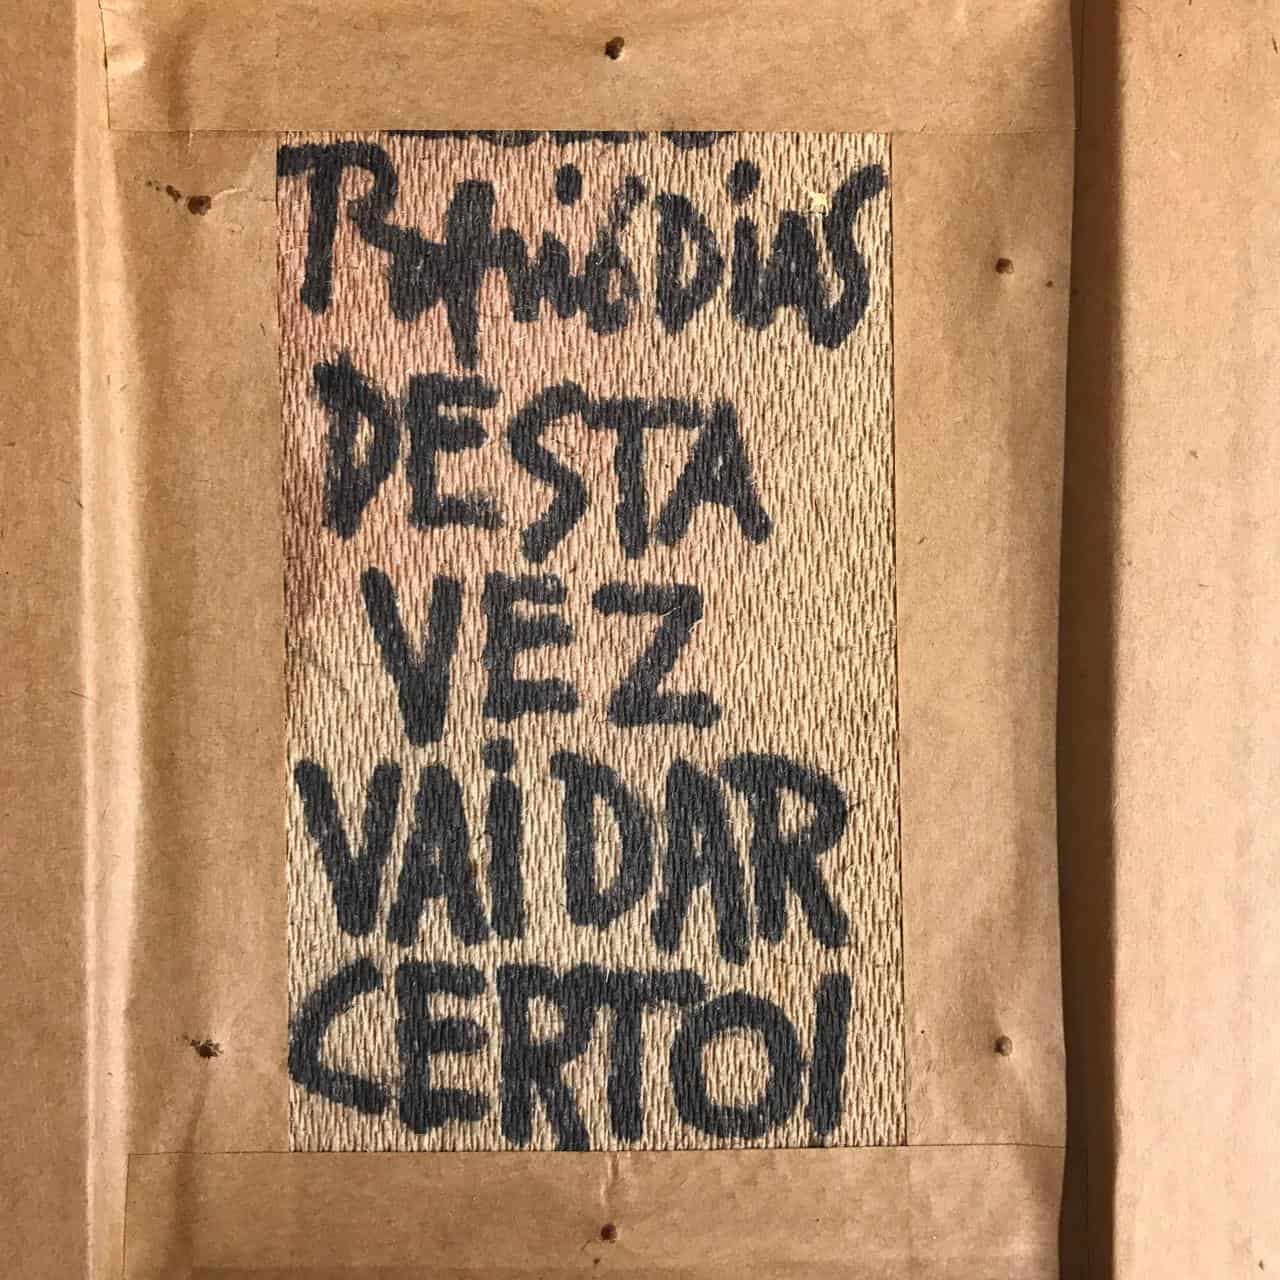 DIAS
DESTA
VEZ
VAI DAR
CERTO!